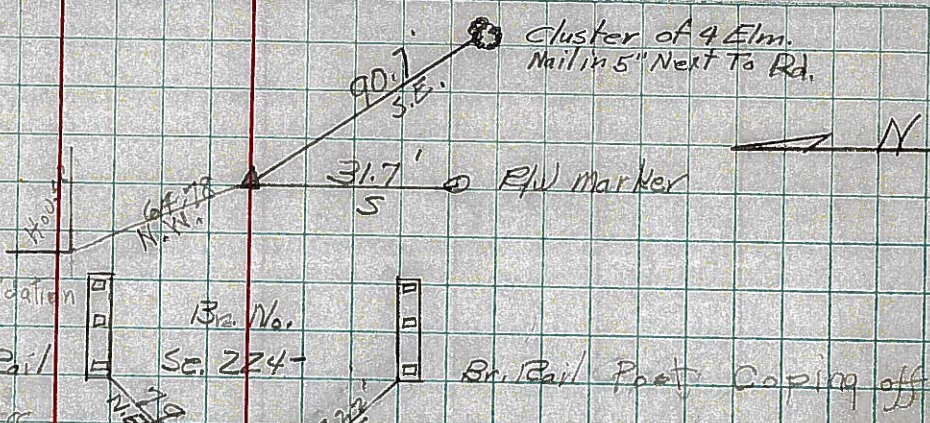 Cluster of 4 Elm.
Nail in 5" Next To Rd.
90.7'
S.E.
N
31.7'
S
R/W marker
64.78
N.W.
House
dation
Br. No.
Se. 224-
ail
Br. Rail Post Coping off
N.E.
79
22'